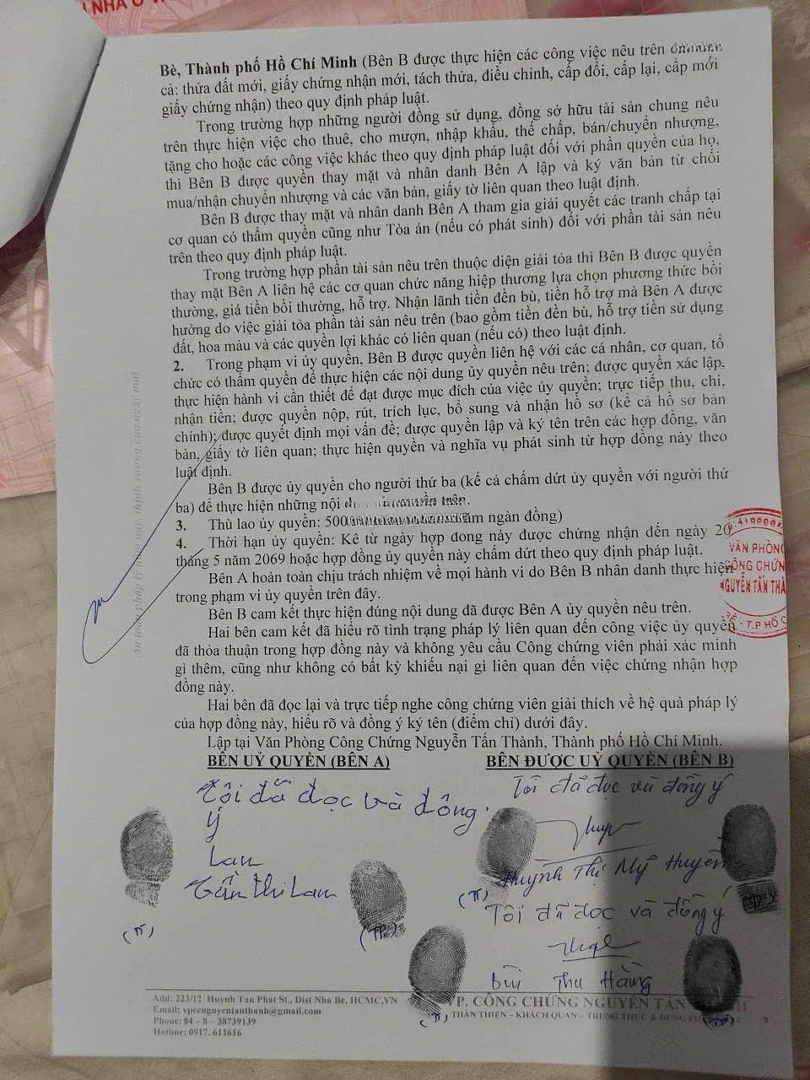 NHÀ Ở V
Bè, Thành phố Hồ Chí Minh (Bên B được thực hiện các công việc nêu trên
cả: thửa đất mới, giấy chứng nhận mới, tách thửa, điều chỉnh, cấp đổi, cấp lại, cấp mới
giấy chứng nhận) theo quy định pháp luật.
Trong trường hợp những người đồng sử dụng, đồng sở hữu tài sản chung nêu
trên thực hiện việc cho thuê, cho mượn, nhập khẩu, thế chấp, bán/chuyển nhượng,
tặng cho hoặc các công việc khác theo quy định pháp luật đối với phần quyền của họ,
thì Bên B được quyền thay mặt và nhân danh Bên A lập và ký văn bản từ chối
mua/nhận chuyển nhượng và các văn bản, giấy tờ liên quan theo luật định.
Bên B được thay mặt và nhân danh Bên A tham gia giải quyết các tranh chấp tại
cơ quan có thẩm quyền cũng như Tòa án (nếu có phát sinh) đối với phần tài sản nêu
trên theo quy định pháp luật.
Trong trường hợp phần tài sản nêu trên thuộc diện giải tỏa thì Bên B được quyền
thay mặt Bên A liên hệ các cơ quan chức năng hiệp thương lựa chọn phương thức bồi
thường, giá tiền bồi thường, hỗ trợ. Nhận lãnh tiền đền bù, tiền hỗ trợ mà Bên A được
hưởng do việc giải tỏa phần tài sản nêu trên (bao gồm tiền đền bù, hỗ trợ tiền sử dụng
đất, hoa màu và các quyền lợi khác có liên quan (nếu có) theo luật định.
2. Trong phạm vi ủy quyền, Bên B được quyền liên hệ với các cá nhân, cơ quan, tổ
chức có thẩm quyền để thực hiện các nội dung ủy quyền nêu trên; được quyền xác lập,
thực hiện hành vi cần thiết để đạt được mục đích của việc ủy quyền; trực tiếp thu, chi,
nhận tiền; được quyền nộp, rút, trích lục, bổ sung và nhận hồ sơ (kể cả hồ sơ bản
chính); được quyết định mọi vấn đề; được quyền lập và ký tên trên các hợp đồng, văn
bản, giấy tờ liên quan; thực hiện quyền và nghĩa vụ phát sinh từ hợp đồng này theo
luật định.
Bên B được ủy quyền cho người thứ ba (kể cả chấm dứt ủy quyền với người thứ
ba) để thực hiện những nội trên.
3. Thù lao ủy quyền: 500 năm ngàn đồng)
4. Thời hạn ủy quyền: Kể từ ngày hợp đồng này được chứng nhận đến ngày 20
tháng 5 năm 2069 hoặc hợp đồng ủy quyền này chấm dứt theo quy định pháp luật.
Bên A hoàn toàn chịu trách nhiệm về mọi hành vi do Bên B nhân danh thực hiện
trong phạm vi ủy quyền trên đây.
Bên B cam kết thực hiện đúng nội dung đã được Bên A ủy quyền nêu trên.
Hai bên cam kết đã hiểu rõ tình trạng pháp lý liên quan đến công việc ủy quyền
đã thỏa thuận trong hợp đồng này và không yêu cầu Công chứng viên phải xác minh
gì thêm, cũng như không có bất kỳ khiếu nại gì liên quan đến việc chứng nhận hợp
đồng này.
Hai bên đã đọc lại và trực tiếp nghe công chứng viên giải thích về hệ quả pháp lý
của hợp đồng này, hiểu rõ và đồng ý ký tên (điểm chỉ) dưới đây.
Lập tại Văn Phòng Công Chứng Nguyễn Tấn Thành, Thành phố Hồ Chí Minh.
VĂN PHÒNG
CÔNG CHỨN
NGUYỄN TẤN THÀ
T.P HỒ C
BÊN UỶ QUYỀN (BÊN A)
BÊN ĐƯỢC UỶ QUYỀN (BÊN B)
Tôi đã đọc và đồng
ý
Lan
Trần Thị Lan
(T)
(TP)
Tôi đã đọc và đồng ý
Huỳnh Thị Mỹ Huyền
(T)
Tôi đã đọc và đồng ý
Bùi Thu Hằng
Add: 223/12 Huynh Tan Phat St., Dist Nha Be, HCMC,VN
Email: vpccnguyentanthanh@gmail.com
Phone: 84 - 8 - 38739139
Hotline: 0917. 611616
VP. CÔNG CHỨNG NGUYỄN TẤN
THÂN THIỆN – KHÁCH QUAN – TRUNG THỰC &